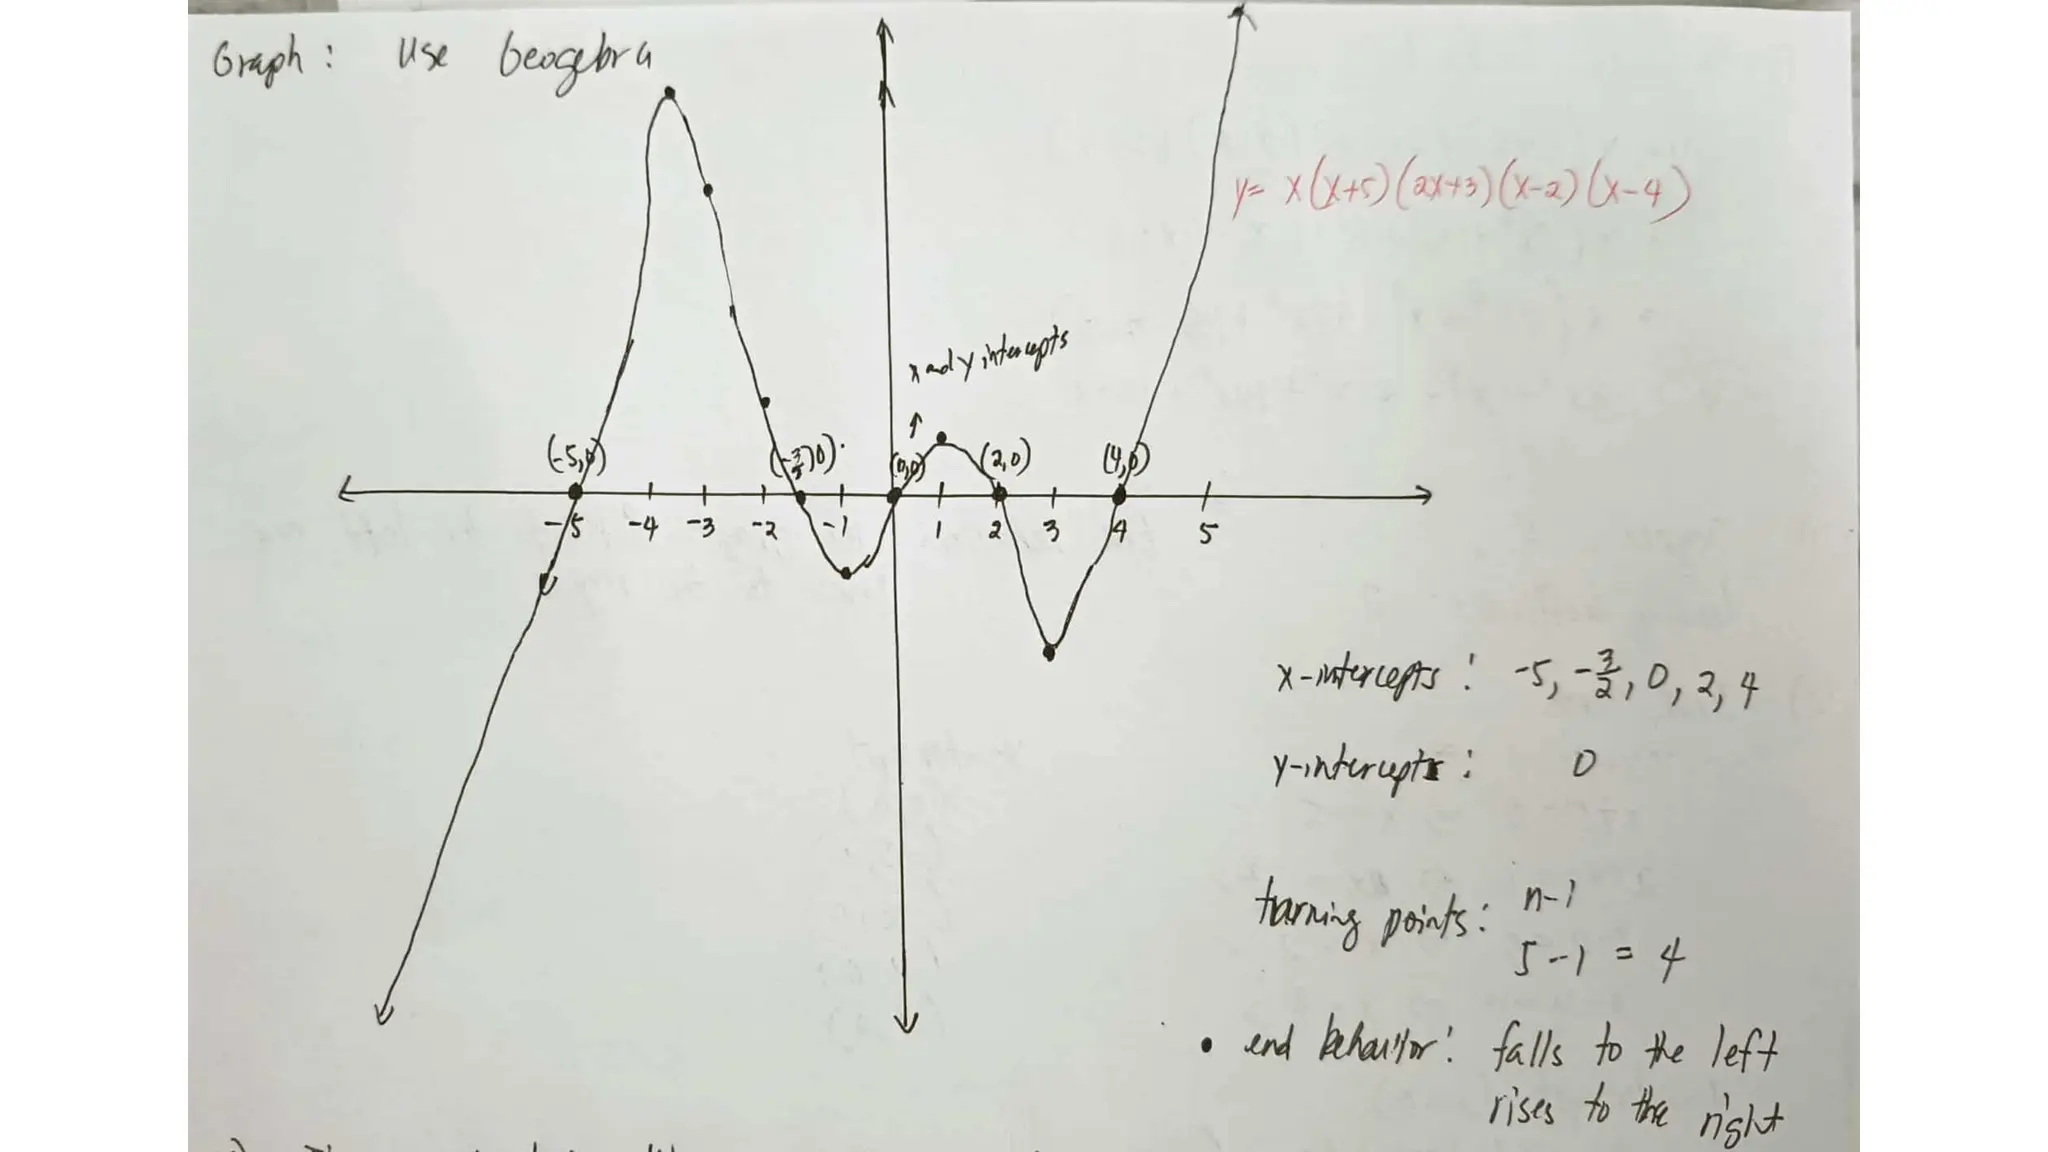 Graph: Use Geogebra
y= x(x+5)(2x+3)(x-2)(x-4)
x and y intercepts
(-5,0) (-3/2,0) (0,0) (2,0) (4,0)
-5 -4 -3 -2 -1 1 2 3 4 5
x-intercepts: -5, -3/2, 0, 2, 4
y-intercept: 0
turning points: n-1
5-1 = 4
• end behavior: falls to the left
rises to the right